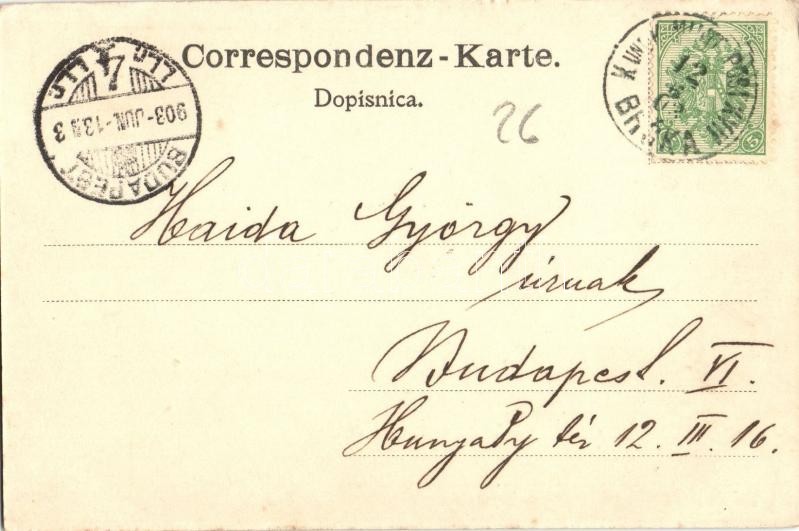 Correspondenz-Karte.
Dopisnica.
26
BUDAPEST
903-JUN.-13
Haida György
úrnak
Budapest. VI.
Hunyady tér 12. III. 16.
5